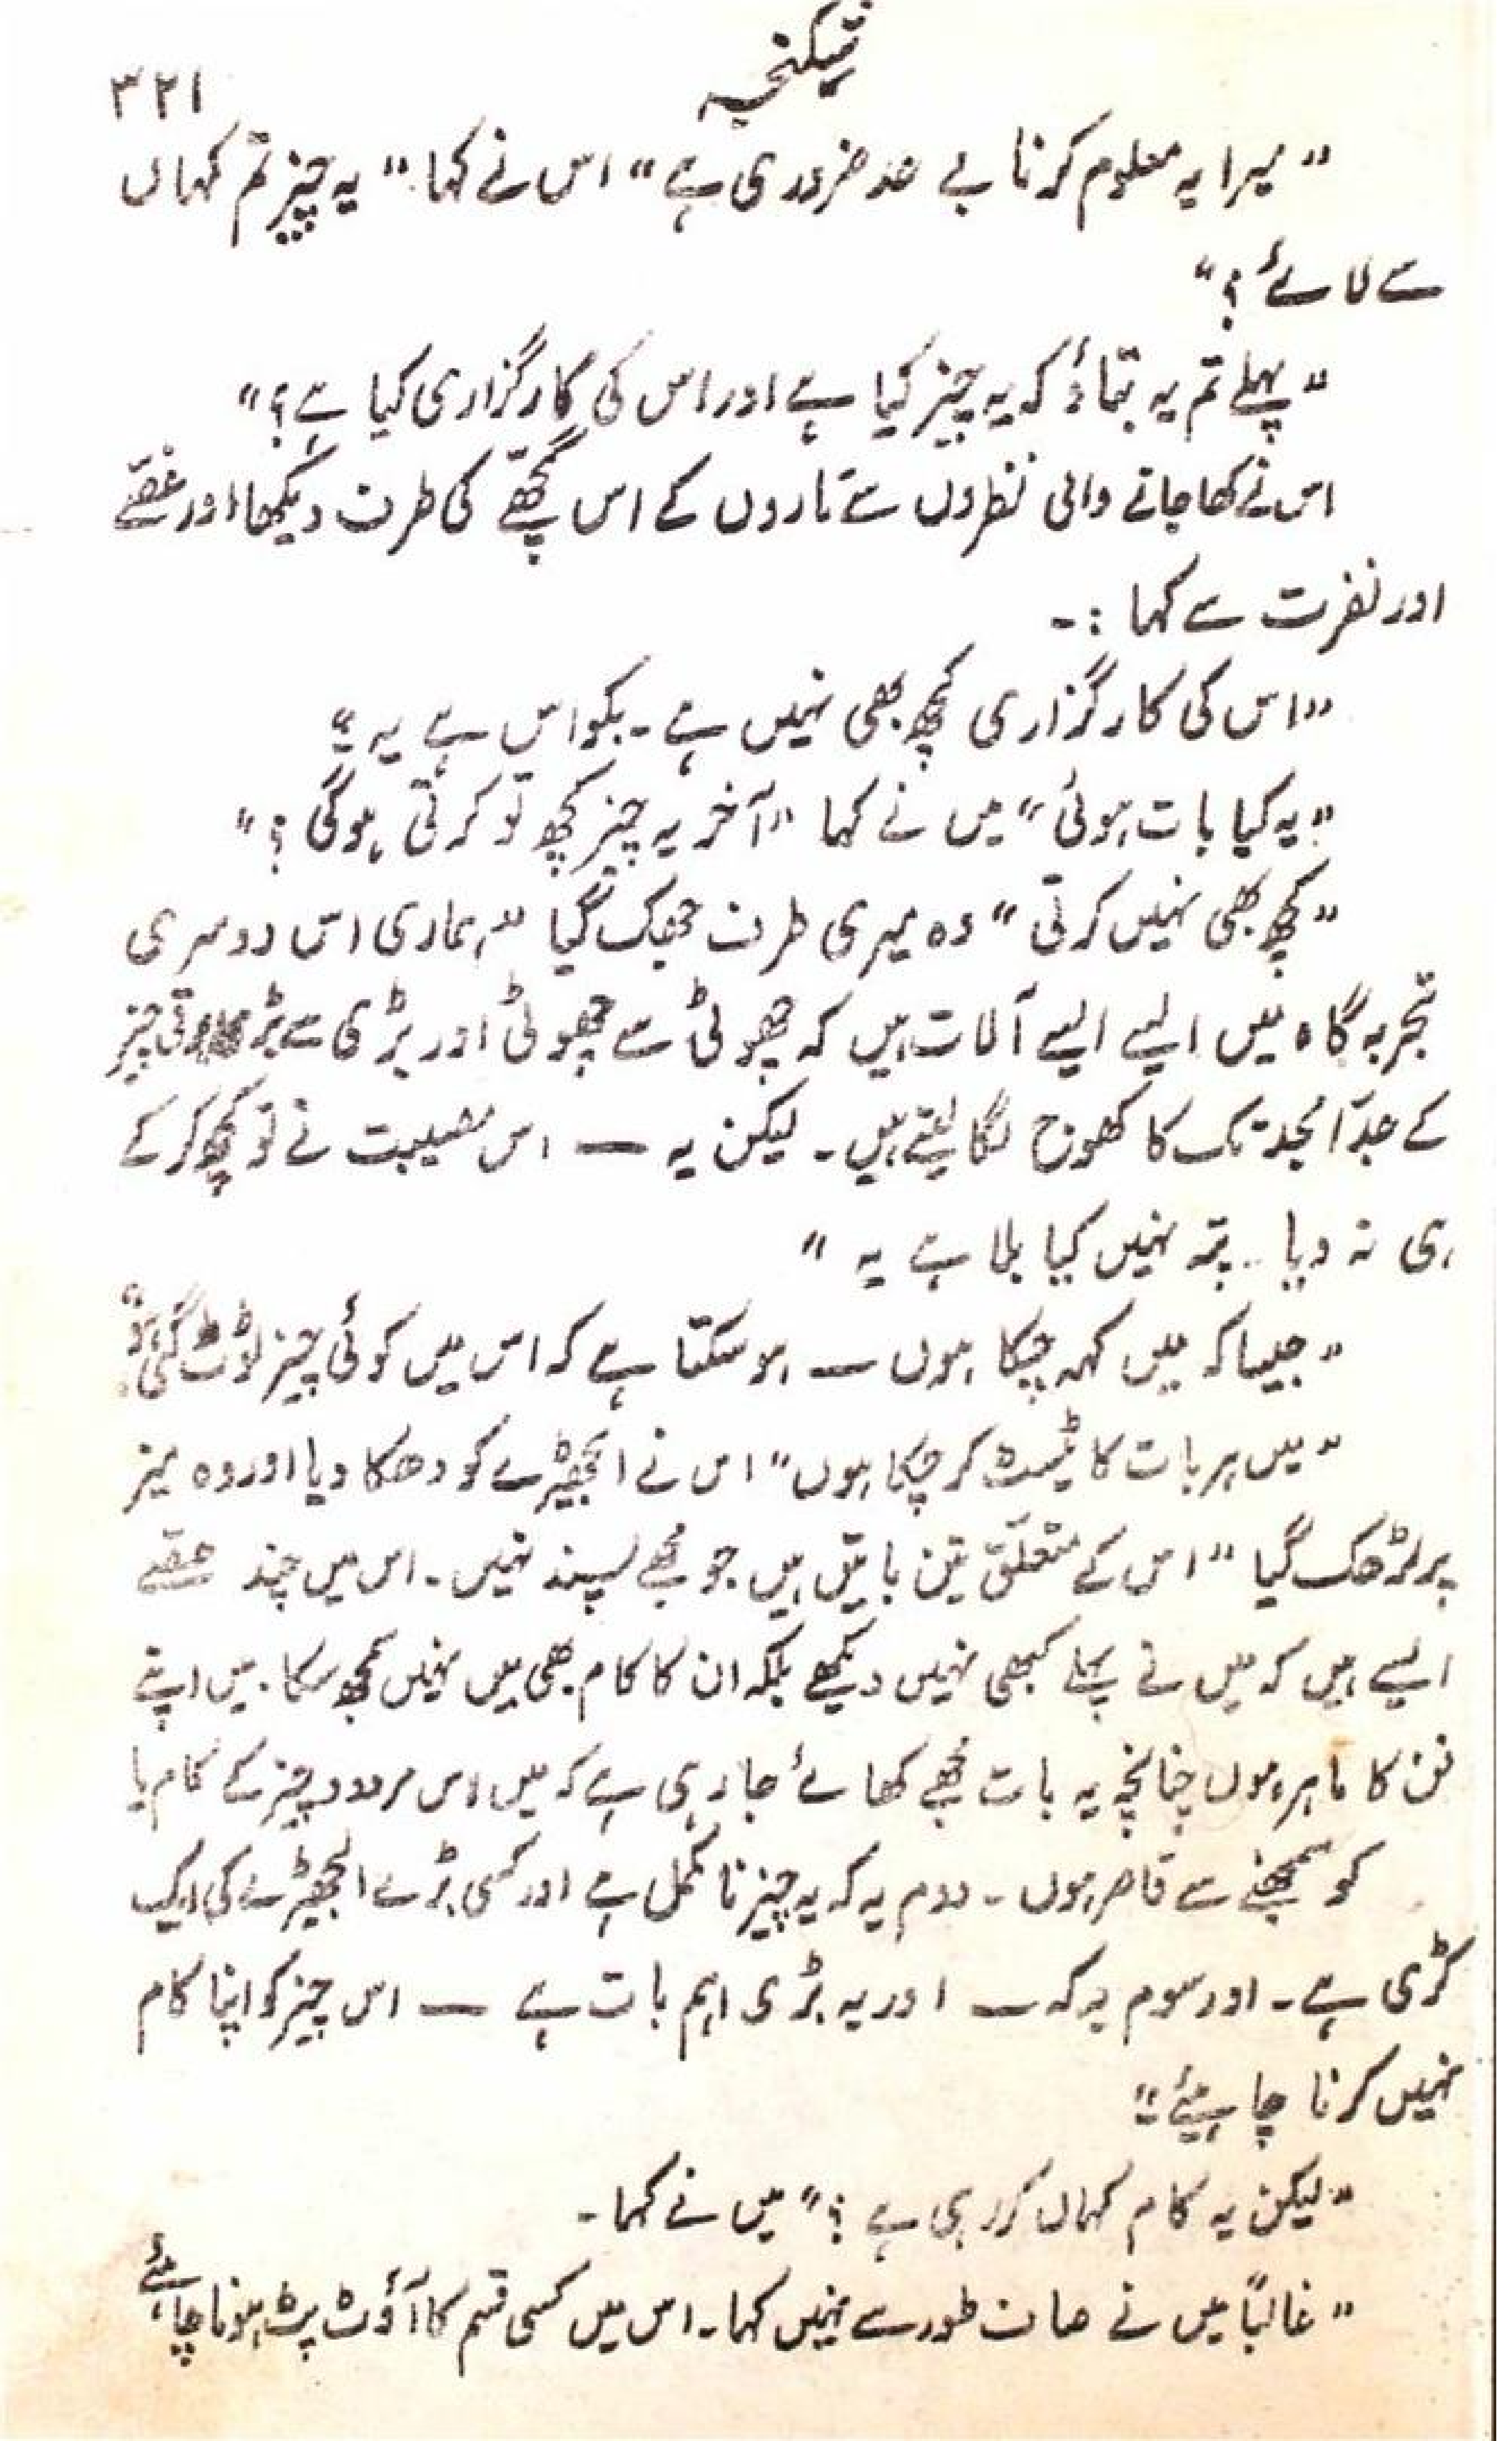 شکنجہ
۳۲۱
"میرا یہ معلوم کرنا بے حد ضروری ہے" اس نے کہا "یہ چیز تم کہاں
سے لائے؟"
"پہلے تم یہ بتاؤ کہ یہ چیز کیا ہے اور اس کی کارگزاری کیا ہے؟"
اس نے کھا جانے والی نظروں سے تاروں کے اس گچھے کی طرف دیکھا اور غصّے
اور نفرت سے کہا :-
"اس کی کارگزاری کچھ بھی نہیں ہے۔ بکواس ہے یہ"
"یہ کیا بات ہوئی" میں نے کہا "آخر یہ چیز کچھ تو کرتی ہوگی؟"
"کچھ بھی نہیں کرتی" وہ میری طرف جھک گیا "ہماری اس دوسری
تجربہ گاہ میں ایسے ایسے آلات ہیں کہ چھوٹی سے چھوٹی اور بڑی سے بڑی برقی چیز
کے جدّ امجد تک کا کھوج لگا لیتے ہیں۔ لیکن یہ — اس مصیبت نے تو کچھ کر کے
ہی نہ دیا۔ پتہ نہیں کیا بلا ہے یہ"
"جیسا کہ میں کہہ چکا ہوں — ہو سکتا ہے کہ اس میں کوئی چیز ٹوٹ گئی ہو"
"میں ہر بات کا ٹیسٹ کر چکا ہوں" اس نے الجھیڑے کو دھکا دیا اور وہ میز
پر لڑھک گیا "اس کے متعلّق تین باتیں ہیں جو مجھے پسند نہیں۔ اس میں چند حصّے
ایسے ہیں کہ میں نے پہلے کبھی نہیں دیکھے بلکہ ان کا کام بھی میں نہیں سمجھ سکا۔ میں اپنے
فن کا ماہر ہوں چنانچہ یہ بات مجھے کھائے جا رہی ہے کہ میں اس مردود چیز کے کام یا
کو سمجھنے سے قاصر ہوں۔ دوم یہ کہ یہ چیز نامکمل ہے اور کسی بڑے الجھیڑے کی ایک
کڑی ہے۔ اور سوم یہ کہ — اور یہ بڑی اہم بات ہے — اس چیز کو اپنا کام
نہیں کرنا چاہیئے"
"لیکن یہ کام کہاں کر رہی ہے؟" میں نے کہا۔
"غالباً میں نے صاف طور سے نہیں کہا۔ اس میں کسی قسم کا آؤٹ پٹ ہونا چاہئے